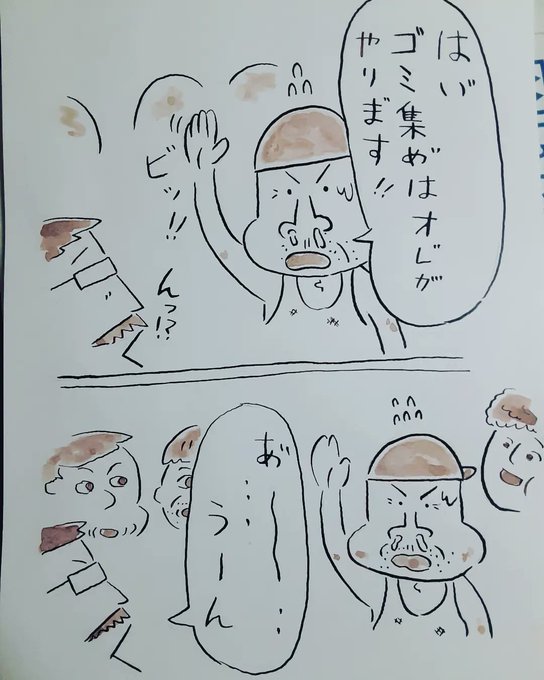 はい゛
ゴミ集め゛はオレが
やりま゛す!!
ビッ!!
んっ!?
あ゛ーー…
……うーん